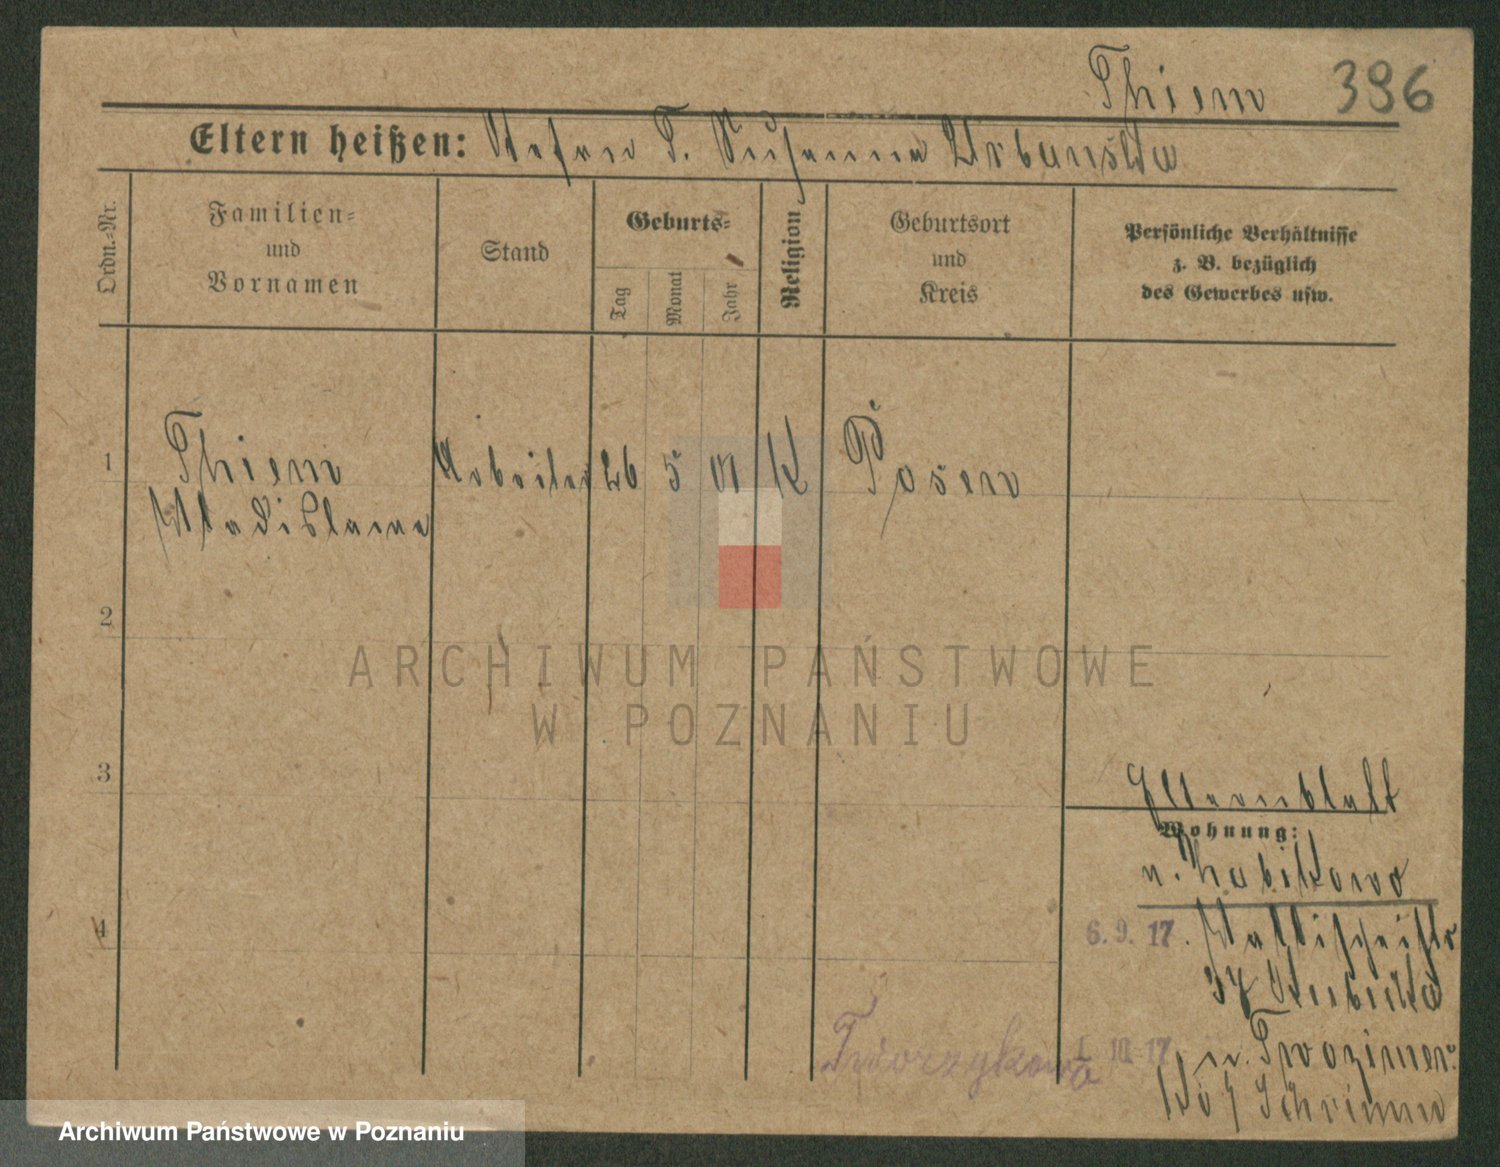 Thiem 396
Eltern heißen: Stefan T. Susanna Urbanska
Ordn.-Nr.
Familien-
und
Vornamen
Stand
Geburts-
Tag
Monat
Jahr
Religion
Geburtsort
und
Kreis
Persönliche Verhältnisse
z. B. bezüglich
des Gewerbes usw.
1 Thiem Arbeiter 26 5 01 K Posen
Wladislawa
2
3
4
Elternblatt
Wohnung:
n. Zabikowo
6. 9. 17. Wallischeistr
Tworzykowo 1 10 17 n.
Schrimm
ARCHIWUM PAŃSTWOWE
W POZNANIU
Archiwum Państwowe w Poznaniu